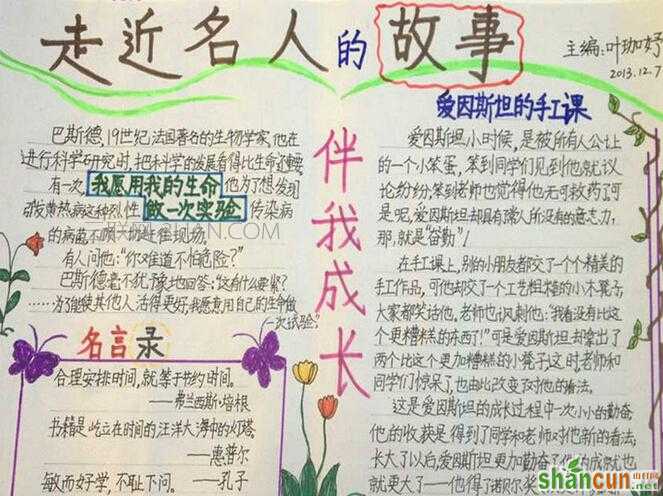 走近名人的故事
主编:叶珈妤
2013.12.7
巴斯德,19世纪法国著名的生物学家,他在
进行科学研究时,把科学的发展看得比生命还重要。
有一次,我愿用我的生命他为了想发现
黄热病这种烈性做一次实验传染病
的病菌不顾一切赶往现场。
有人问他:“你难道不怕危险?”
巴斯德毫不犹豫地回答:“这有什么要紧?
……为了能使其他人活得更好,我愿意用自己的生命做
一次试验。”
名言录
合理安排时间,就等于节约时间。
——弗兰西斯·培根
书籍是屹立在时间的汪洋大海中的灯塔。
——惠普尔
敏而好学,不耻下问。
——孔子
伴我成长
爱因斯坦的手工课
爱因斯坦小时候,是被所有人公认
的一个小笨蛋,笨到同学们见到他就议
论纷纷;笨到老师也觉得他无可救药了可
是呢,爱因斯坦却具有常人所没有的意志力,
那,就是“奋勤”!
在手工课上,别的小朋友都交了一个个精美的
手工作品,可他却交了一个工艺粗糙的小木凳子,
大家都笑话他。老师也讽刺他:“我看没有比这
个更糟糕的东西了!”可是爱因斯坦却拿出了
两个比这个更加糟糕的小凳子,这时,老师和
同学们惊呆了,也由此改变了对他的看法。
这是爱因斯坦的成长过程中一次小小的勤奋,
他的收获是得到了同学和老师对他新的看法;
长大了以后,爱因斯坦更加勤奋了,他的成就也
就更大了——他得了诺贝尔奖
shancun.net